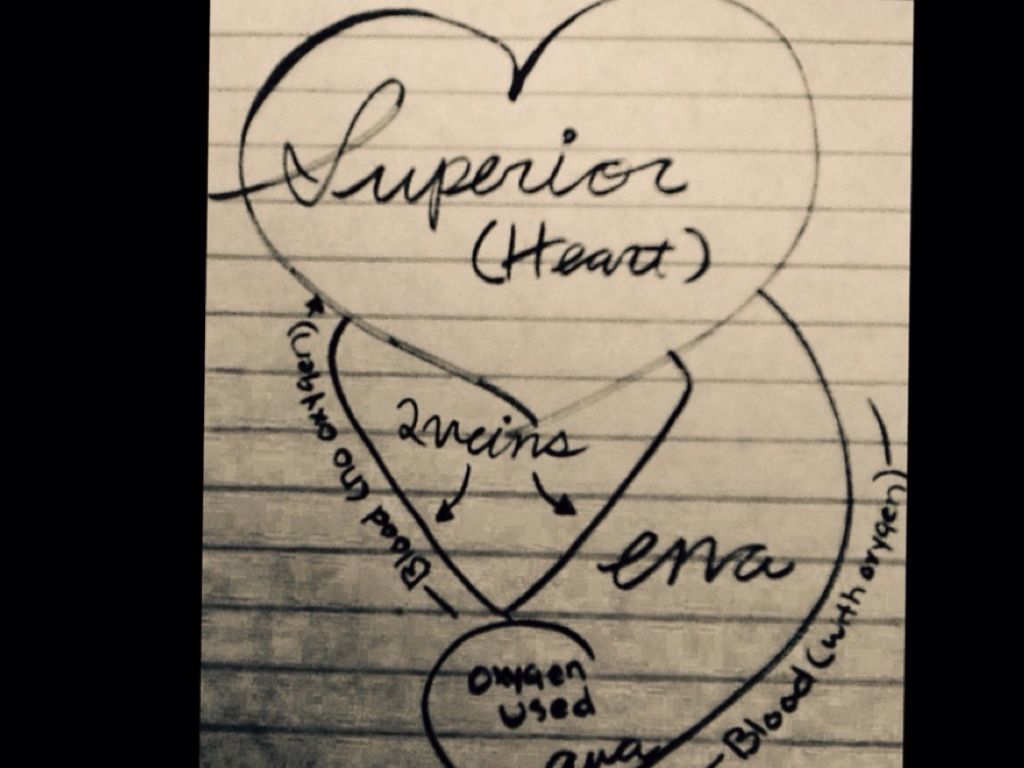 Superior
(Heart)
2 veins
Blood (no oxygen)
Blood (with oxygen)
oxygen
used